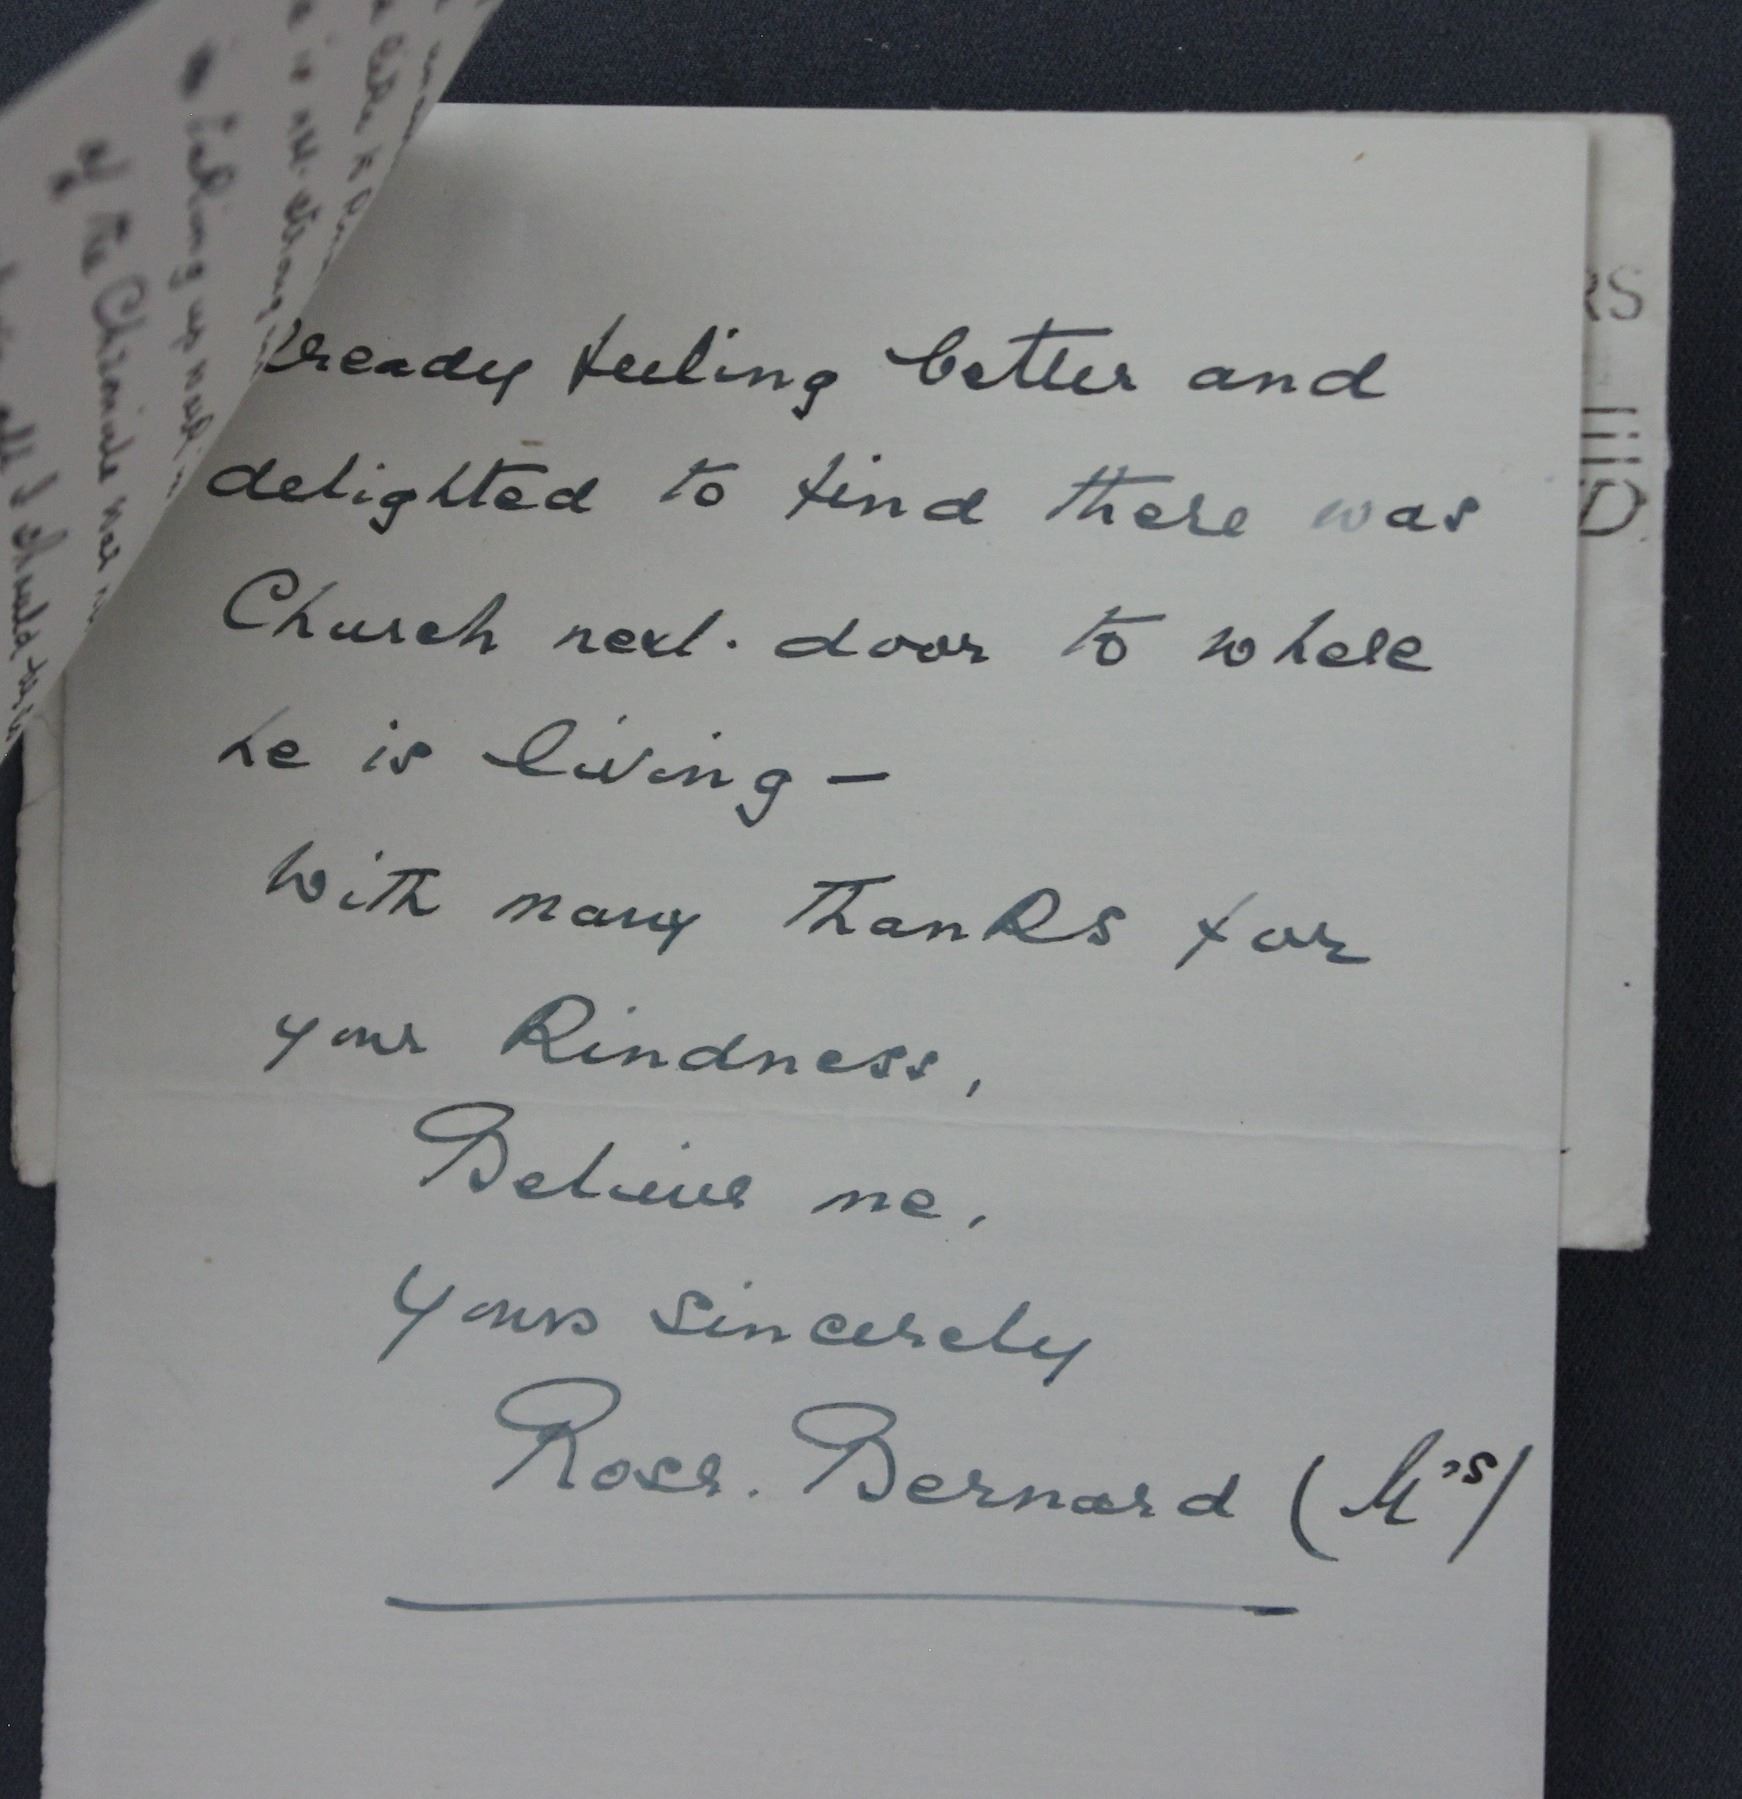 lready feeling better and
delighted to find there was
Church next. door to where
he is living —
With many thanks for
your kindness,
Believe me,
Yours sincerely
Rose. Bernard (Mrs)
of the Chronicle
all I should
RS